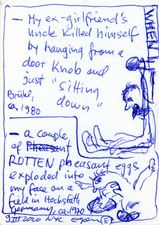 — My ex-girlfriend's
uncle killed himself
by hanging from a
door knob and
just "sitting
down"
Brühl,
ca, 1980
WHEN I
— a couple
of
ROTTEN pheasant eggs
exploded into
my face on a
field in Höchstätt,
Germany, ca. 1970
2020 NYC